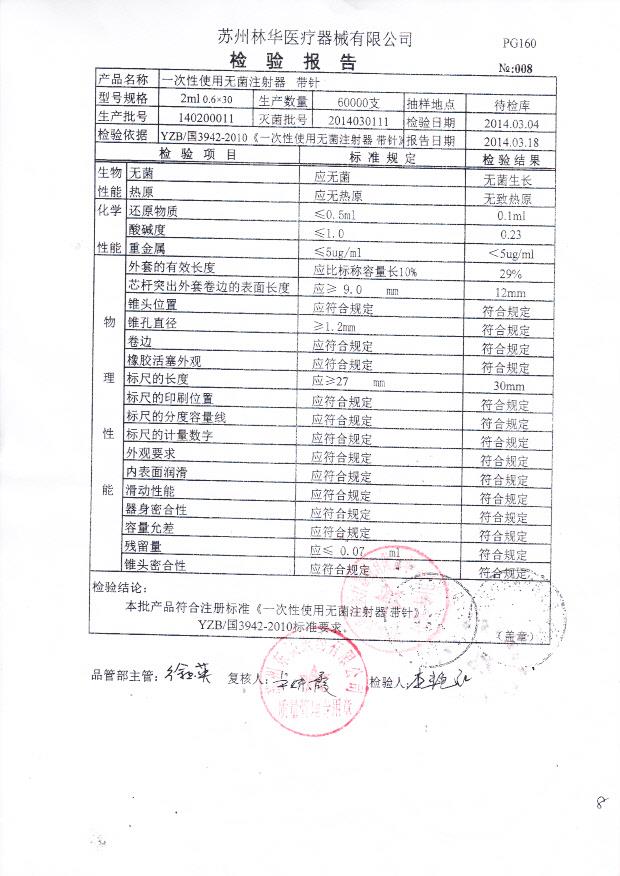 苏州林华医疗器械有限公司
PG160
检 验 报 告
№:008
产品名称 一次性使用无菌注射器 带针
型号规格 2ml 0.6×30 生产数量 60000支 抽样地点 待检库
生产批号 140200011 灭菌批号 2014030111 检验日期 2014.03.04
检验依据 YZB/国3942-2010《一次性使用无菌注射器 带针》 报告日期 2014.03.18
检 验 项 目 标 准 规 定 检 验 结 果
生物 无菌 应无菌 无菌生长
性能 热原 应无热原 无致热原
化学 还原物质 ≤0.5ml 0.1ml
酸碱度 ≤1.0 0.23
性能 重金属 ≤5ug/ml <5ug/ml
外套的有效长度 应比标称容量长10% 29%
芯杆突出外套卷边的表面长度 应≥ 9.0 mm 12mm
锥头位置 应符合规定 符合规定
物 锥孔直径 ≥1.2mm 符合规定
卷边 应符合规定 符合规定
橡胶活塞外观 应符合规定 符合规定
理 标尺的长度 应≥27 mm 30mm
标尺的印刷位置 应符合规定 符合规定
标尺的分度容量线 应符合规定 符合规定
性 标尺的计量数字 应符合规定 符合规定
外观要求 应符合规定 符合规定
内表面润滑 应符合规定 符合规定
能 滑动性能 应符合规定 符合规定
器身密合性 应符合规定 符合规定
容量允差 应符合规定 符合规定
残留量 应≤ 0.07 ml 符合规定
锥头密合性 应符合规定 符合规定
检验结论:
本批产品符合注册标准《一次性使用无菌注射器 带针》
YZB/国3942-2010标准要求。
(盖章)
品管部主管: 复核人: 检验人:
8